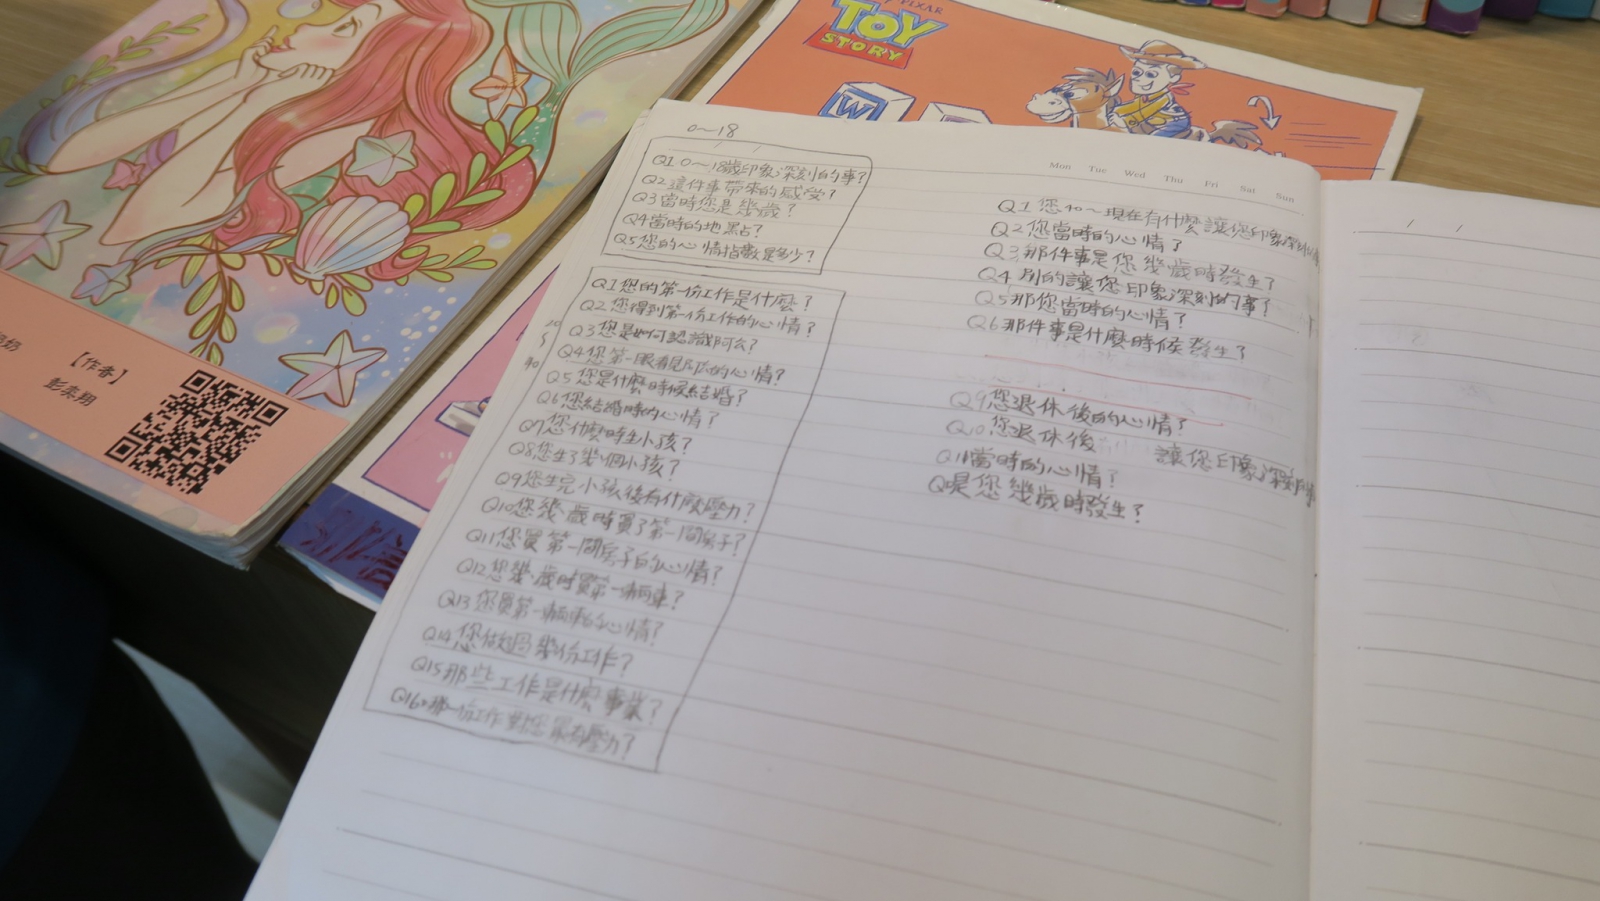 PIXAR
TOY
STORY
W
【作者】
彭奕翔
0～18
Q1 0～18歲印象深刻的事?
Q2 這件事帶來的感受?
Q3 當時您是幾歲?
Q4 當時的地點?
Q5 您的心情指數是多少?
Q1 您的第一份工作是什麼?
Q2 您得到第一份工作的心情?
Q3 您是如何認識阿公?
Q4 您第一眼看見阿公的心情?
Q5 您是什麼時候結婚?
Q6 您結婚時的心情?
Q7 您什麼時生小孩?
Q8 您生了幾個小孩?
Q9 您生完小孩後有什麼壓力?
Q10 您幾歲時買了第一間房子?
Q11 您買第一間房子的心情?
Q12 您幾歲時買第一輛車?
Q13 您買第一輛車的心情?
Q14 您做過幾份工作?
Q15 那些工作是什麼事業?
Q16 那一份工作對您最有壓力?
Mon Tue Wed Thu Fri Sat Sun
Q1 您40～現在有什麼讓您印象深刻
Q2 您當時的心情?
Q3 那件事是您幾歲時發生?
Q4 別的讓您印象深刻的事?
Q5 那您當時的心情?
Q6 那件事是什麼時候發生?
Q9 您退休後的心情?
Q10 您退休後 讓您印象深刻
Q11 當時的心情?
Q 是您幾歲時發生?